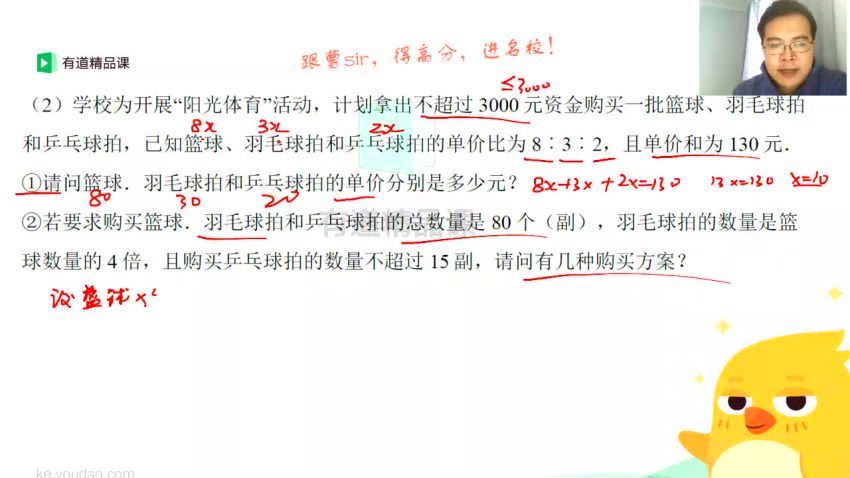 跟曹sir，得高分，进名校！
有道精品课
≤3000
（2）学校为开展“阳光体育”活动，计划拿出不超过 3000 元资金购买一批篮球、羽毛球拍
8x 3x 2x
和乒乓球拍，已知篮球、羽毛球拍和乒乓球拍的单价比为 8∶3∶2，且单价和为 130 元．
①请问篮球．羽毛球拍和乒乓球拍的单价分别是多少元？ 8x+3x+2x=130 13x=130 x=10
80 30 20
②若要求购买篮球．羽毛球拍和乒乓球拍的总数量是 80 个（副），羽毛球拍的数量是篮
有道精品课
球数量的 4 倍，且购买乒乓球拍的数量不超过 15 副，请问有几种购买方案？
设篮球x
ke.youdao.com